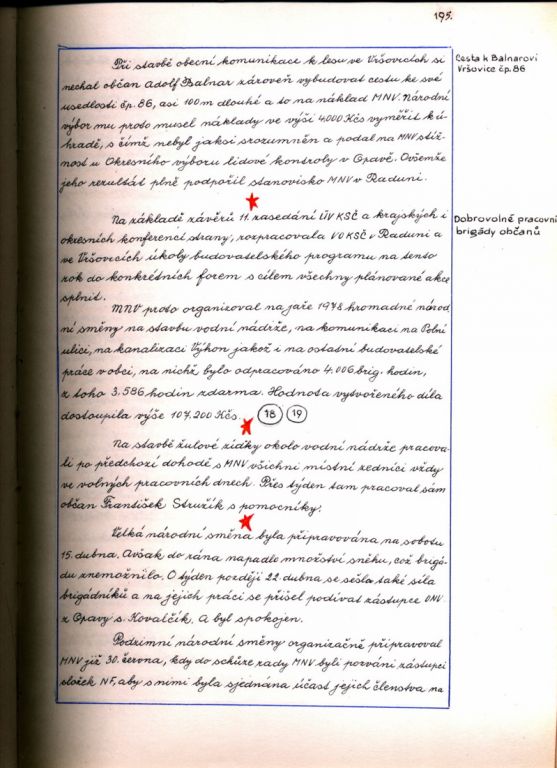 195.
Při stavbě obecní komunikace k lesu ve Vršovicích si
nechal občan Adolf Balnar zároveň vybudovat cestu ke své
usedlosti čp. 86, asi 100 m dlouhé a to na náklad MNV. Národní
výbor mu proto musel náklady ve výši 4.000 Kčs vyměřit k ú-
hradě, s čímž nebyl jaksi srozumněn a podal na MNV stíž-
nost u Okresního výboru lidové kontroly v Opavě. Ovšemže
jeho rezultát plně podpořil stanovisko MNV v Raduni.
Cesta k Balnarovi
Vršovice čp. 86
Na základě závěrů 11. zasedání ÚV KSČ a krajských i
okresních konferencí strany, rozpracovala VO KSČ v Raduni a
ve Vršovicích úkoly budovatelského programu na tento
rok do konkrétních forem s cílem všechny plánované akce
splnit.
Dobrovolné pracovní
brigády občanů
MNV proto organizoval na jaře 1978 hromadné národ
ní směny na stavbu vodní nádrže, na komunikaci na Polní
ulici, na kanalizaci Výhon jakož i na ostatní budovatelské
práce v obci, na nichž bylo odpracováno 4.006 brig. hodin,
z toho 3.586 hodin zdarma. Hodnota vytvořeného díla
dostoupila výše 107.200 Kčs. 18 19
Na stavbě žulové zídky okolo vodní nádrže pracova-
li po předchozí dohodě s MNV všichni místní zedníci vždy
ve volných pracovních dnech. Přes týden tam pracoval sám
občan František Stružík s pomocníky.
Velká národní směna byla připravována na sobotu
15. dubna. Avšak do rána napadlo množství sněhu, což brigá-
du znemožnilo. O týden později 22. dubna se sešla také síla
brigádníků a na jejich práci se přišel podívat zástupce ONV
z Opavy s. Kovalčík. A byl spokojen.
Podzimní národní směny organizačně připravoval
MNV již 30. června, kdy do schůze rady MNV byli pozváni zástupci
složek NF, aby s nimi byla sjednána účast jejich členstva na